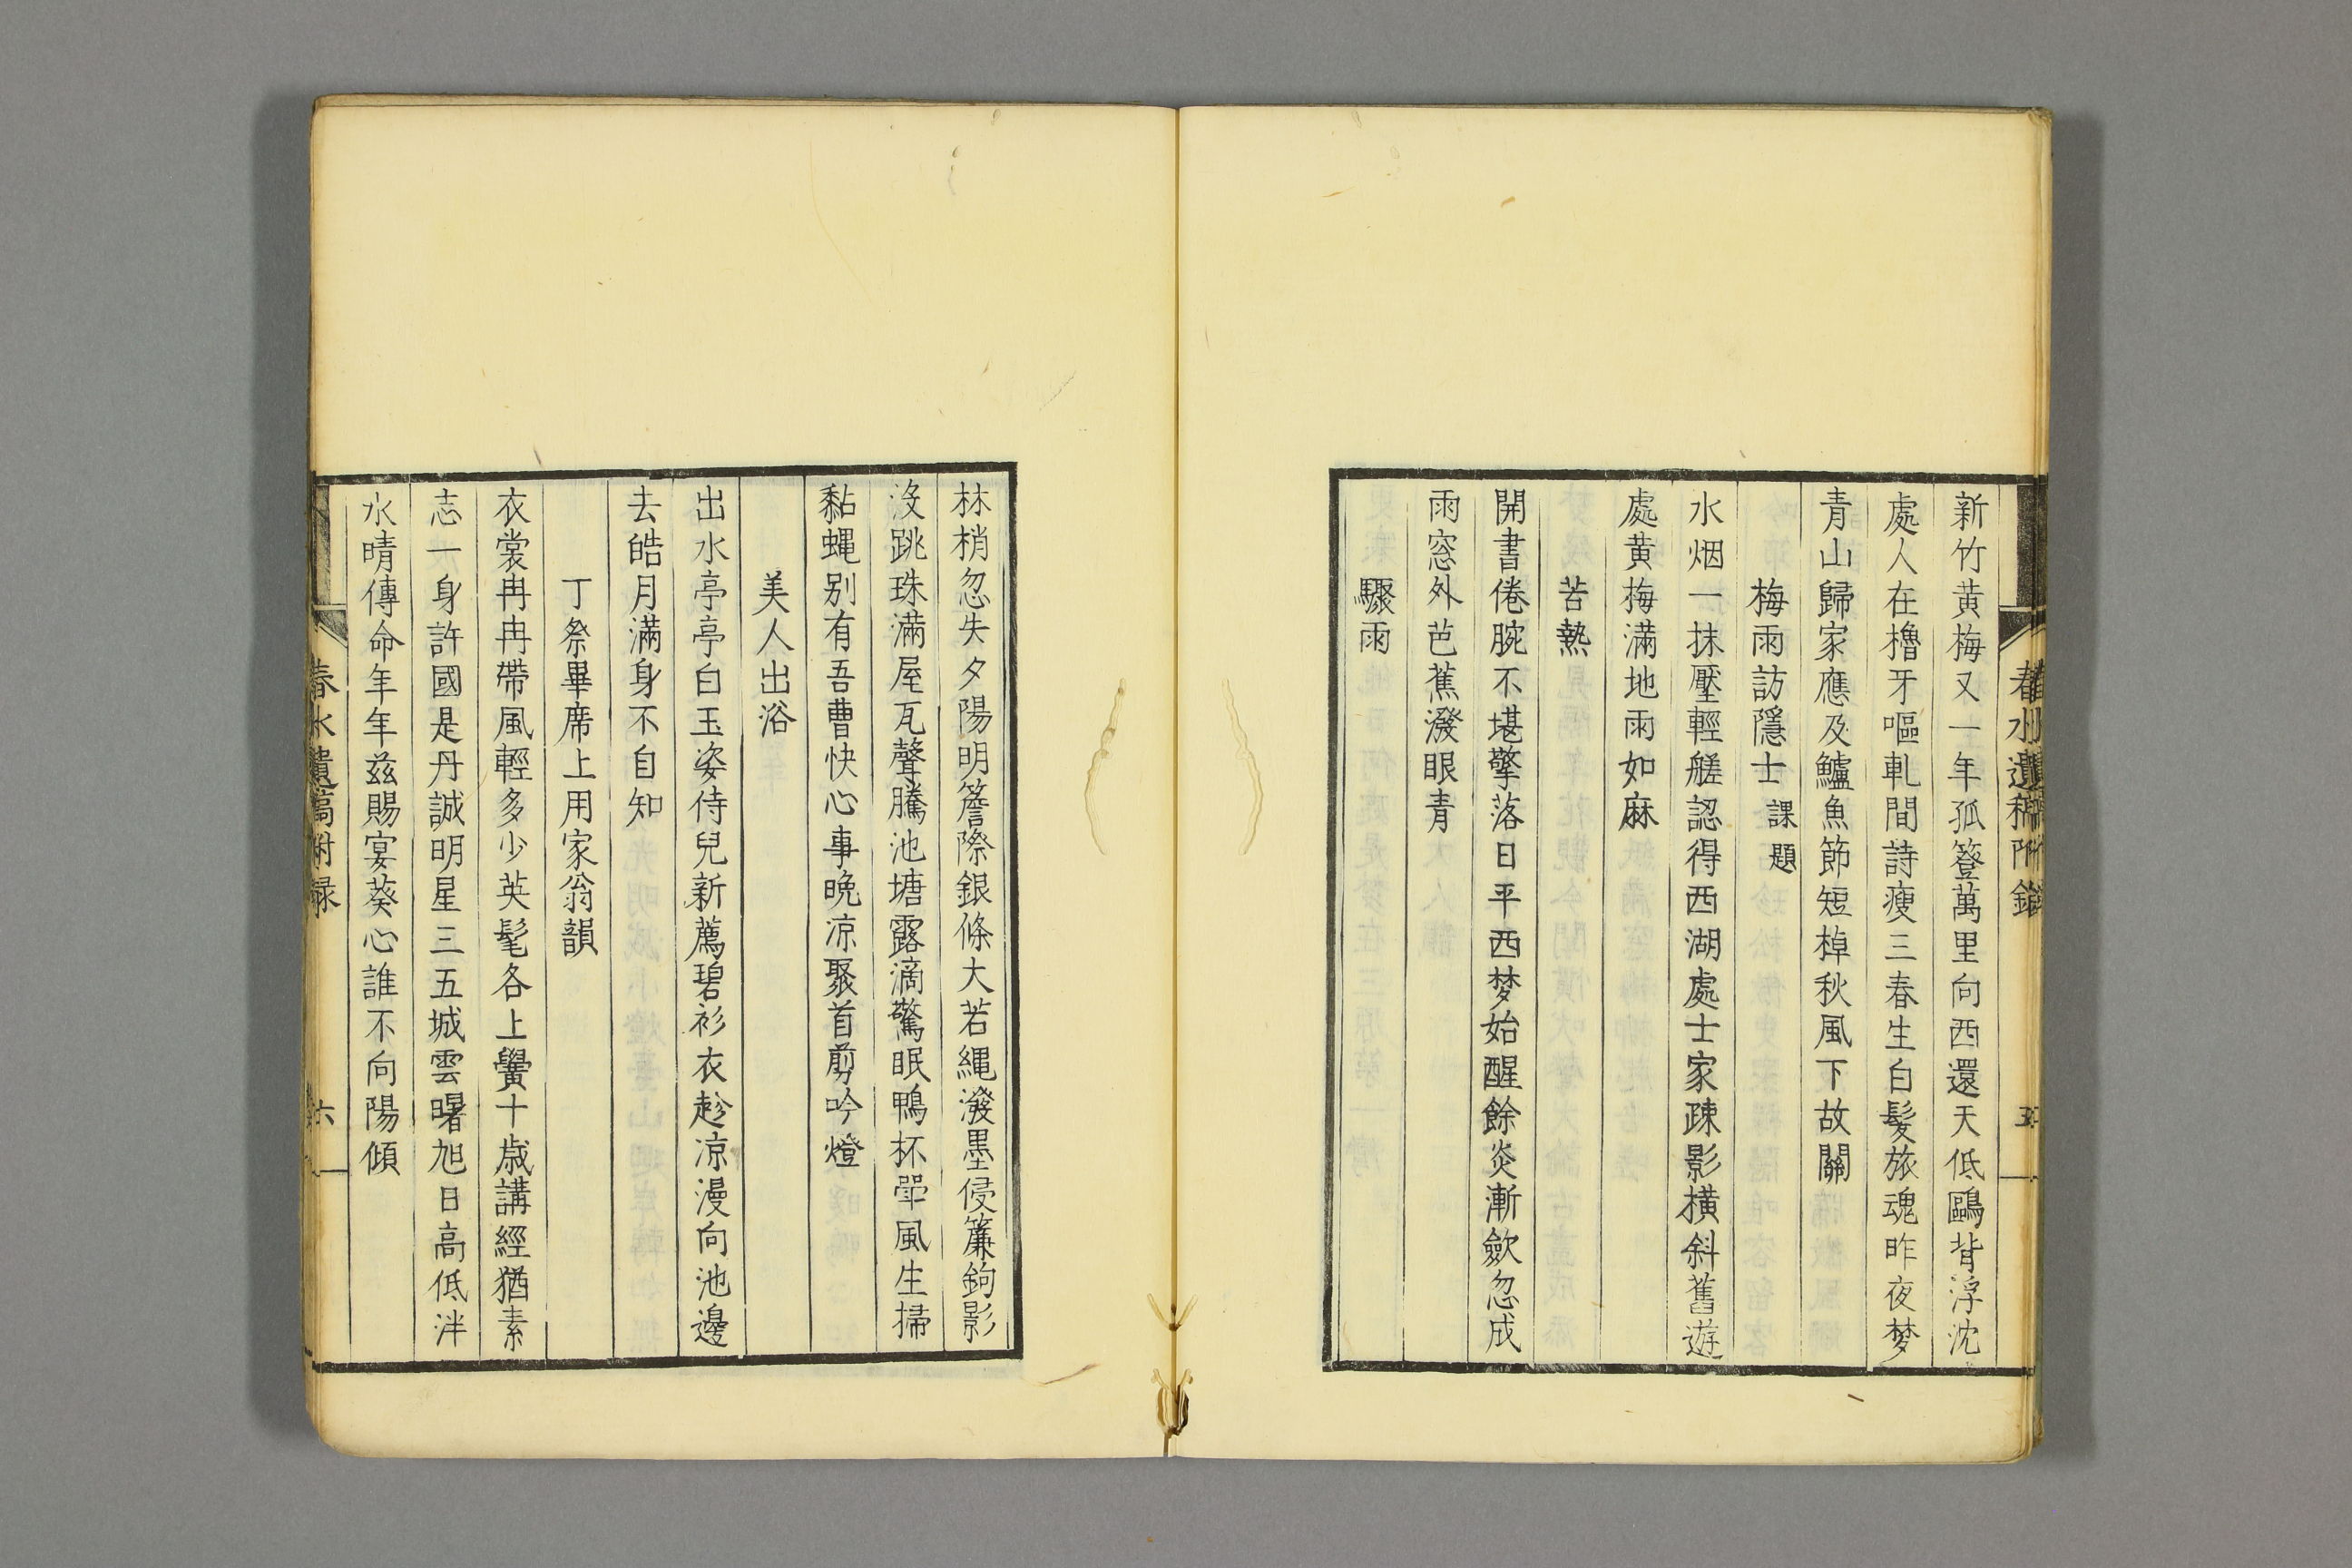 新竹黄梅又一年孤簦萬里向西還天低鷗背浮沈
處人在櫓牙嘔軋間詩瘦三春生白髮旅魂昨夜梦
青山歸家應及鱸魚節短棹秋風下故關
梅雨訪隱士課題
水烟一抹壓輕艖認得西湖處士家疎影横斜舊遊
處黄梅滿地雨如麻
苦熱
開書倦腕不堪擎落日平西梦始醒餘炎漸歛忽成
雨窓外芭蕉潑眼青
驟雨
林梢忽失夕陽明簷際銀條大若繩潑墨侵簾鉤影
沒跳珠滿屋瓦聲騰池塘露滴驚眠鴨枕簟風生掃
黏蝿别有吾曹快心事晩涼聚首剪吟燈
美人出浴
出水亭亭白玉姿侍兒新薦碧衫衣趁凉漫向池邊
去皓月滿身不自知
丁祭畢席上用家翁韻
衣裳冉冉帶風輕多少英髦各上黌十歳講經猶素
志一身許國是丹誠明星三五城雲曙旭日高低泮
水晴傳命年年兹賜宴葵心誰不向陽傾
春水遺稿附録
六